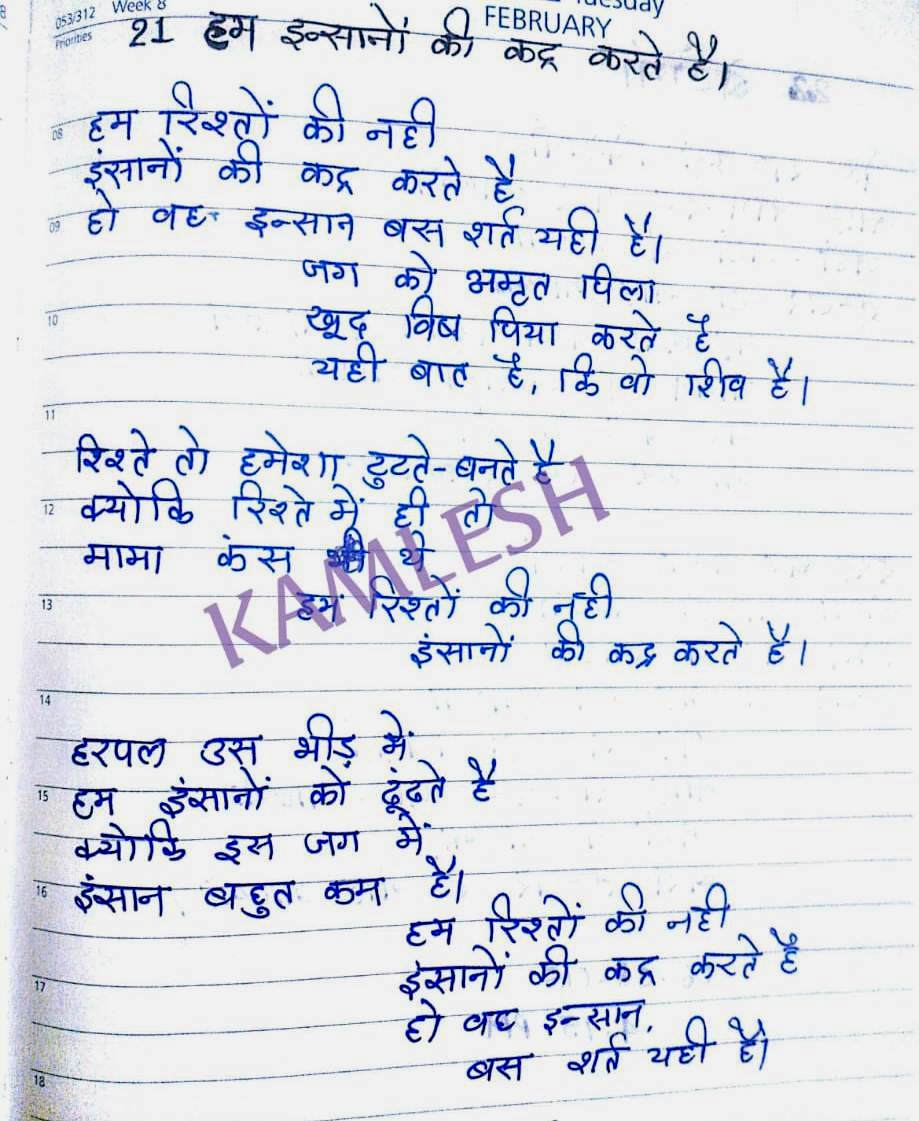 053/312 Week 8
Tuesday
FEBRUARY
Priorities
21 हम इन्सानों की कद्र करते है।
08 हम रिश्तों की नही
इंसानों की कद्र करते है
09 हो वह इन्सान बस शर्त यही है।
जग को अमृत पिला
10 खूद विष पिया करते है
यही बात है, कि वो शिव है।
11
रिश्ते तो हमेशा टुटते-बनते है
12 क्योकि रिश्ते में ही तो
मामा कंस थे
KAMLESH
13 हम रिश्तों की नही
इंसानों की कद्र करते है।
14
हरपल उस भीड़ में
15 हम इंसानों को ढूंढते है
क्योकि इस जग में
16 इंसान बहुत कम है।
हम रिश्तों की नही
17 इंसानों की कद्र करते है
हो वह इन्सान,
18 बस शर्त यही है।